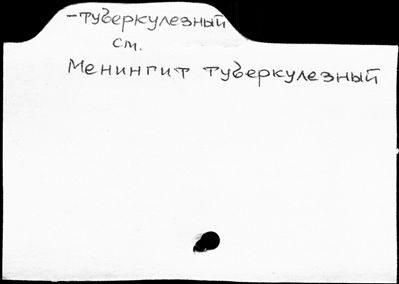 -туберкулезный
см.
Менингит туберкулезный